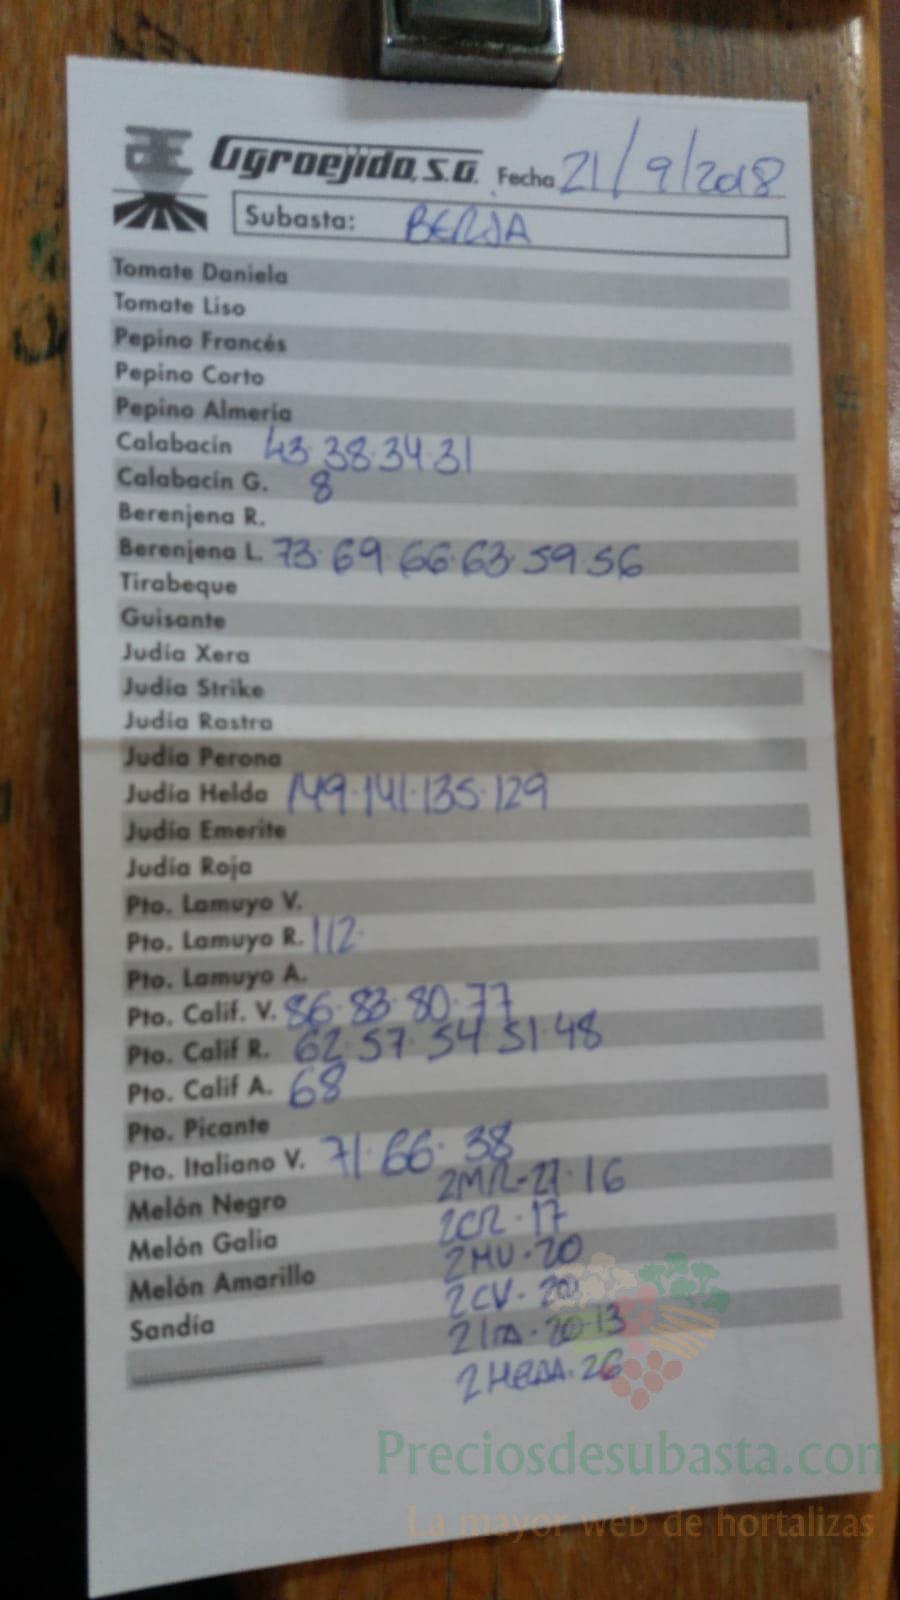 AE Agroejido, S.A. Fecha 21/9/2018
Subasta: BERJA
Tomate Daniela
Tomate Liso
Pepino Francés
Pepino Corto
Pepino Almería
Calabacín 43·38·34·31
Calabacín G. 8
Berenjena R.
Berenjena L. 73·69·66·63·59·56
Tirabeque
Guisante
Judía Xera
Judía Strike
Judía Rastra
Judía Perona
Judía Helda 149·141·135·129
Judía Emerite
Judía Roja
Pto. Lamuyo V.
Pto. Lamuyo R. 112·
Pto. Lamuyo A.
Pto. Calif. V. 86·83·80·77
Pto. Calif R. 62·57·54·51·48
Pto. Calif A. 68
Pto. Picante
Pto. Italiano V. 71·66·38
Melón Negro 2MR-21·16
Melón Galia 2CR·17
Melón Amarillo 2MV·20
Sandía 2CV·20
2ITA·20·13
2HELDA·26
Preciosdesubasta.com
La mayor web de hortalizas